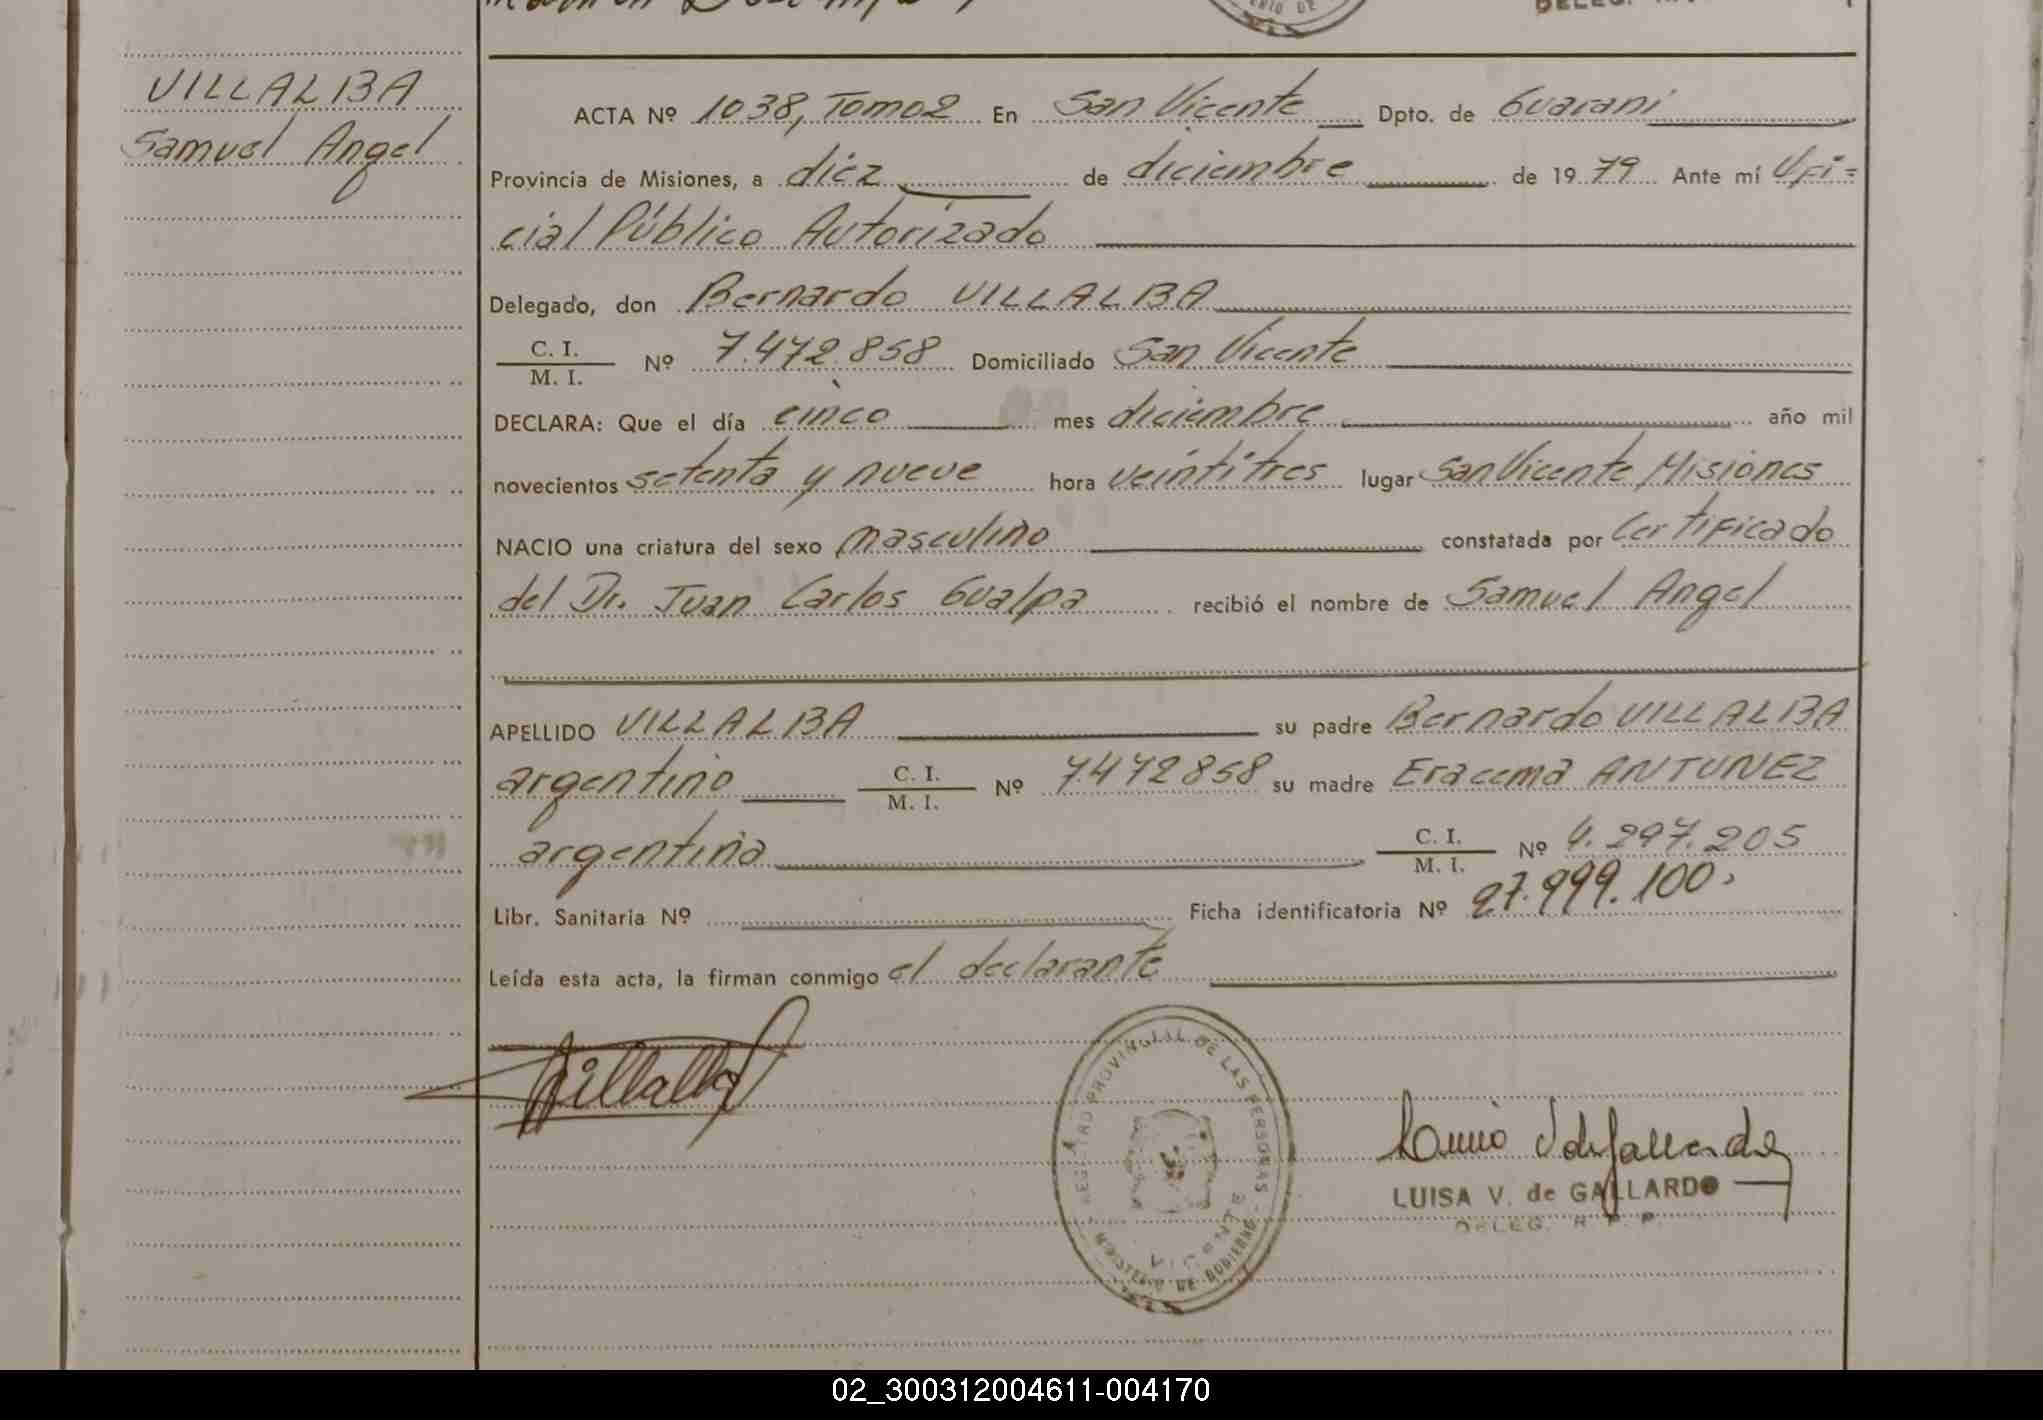 VILLALBA
Samuel Angel
ACTA Nº 1038, Tomo2 En San Vicente Dpto. de Guaraní
Provincia de Misiones, a diez de diciembre de 1979 Ante mí Ofi=
cial Público Autorizado
Delegado, don Bernardo VILLALBA
C. I.
M. I. Nº 7.472.858 Domiciliado San Vicente
DECLARA: Que el día cinco mes diciembre año mil
novecientos setenta y nueve hora veintitres lugar San Vicente Misiones
NACIO una criatura del sexo masculino constatada por Certificado
del Dr. Juan Carlos Gualpa recibió el nombre de Samuel Angel
APELLIDO VILLALBA su padre Bernardo VILLALBA
argentino C. I.
M. I. Nº 7.472858 su madre Eracema ANTUNEZ
argentina C. I.
M. I. Nº 4.297.205
Libr. Sanitaria Nº Ficha identificatoria Nº 27.999.100.
Leída esta acta, la firman conmigo el declarante
REGISTRO PROVINCIAL DE LAS PERSONAS
MINISTERIO DE GOBIERNO
LUISA V. de GALLARDO
DELEG. R. P. P.
02_300312004611-004170